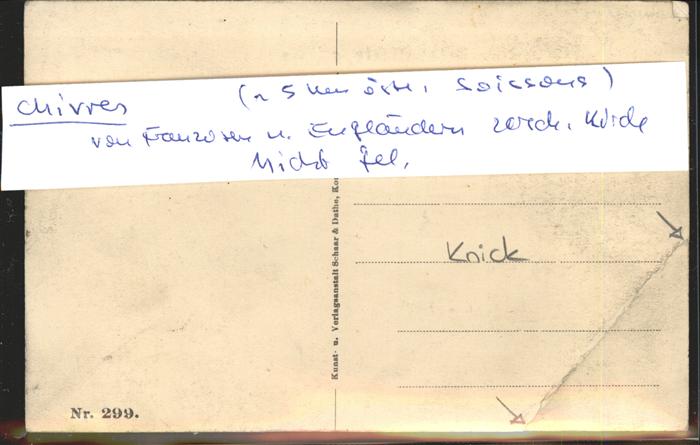 Chivres (~ 5 km östl. Soissons)
von Franzosen u. Engländern zersch. Kirche
Nicht gel.
Kunst- u. Verlagsanstalt Schaar & Dathe,
Knick
Nr. 299.